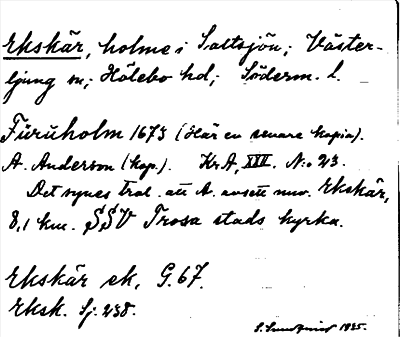 Ekskär, holme i Saltsjön; Väster-
ljung sn; Hölebo hd; Söderm. l.
Furuholm 1673 (Här en senare kopia).
A. Anderson (kop.). Kr A, XIII. N:o 23.
Det synes trol. att A. avsett nuv. Ekskär,
8,1 km. SSV Trosa stads kyrka.
Ekskär ek, G. 67.
Eksk. Sj. 238.
1935.